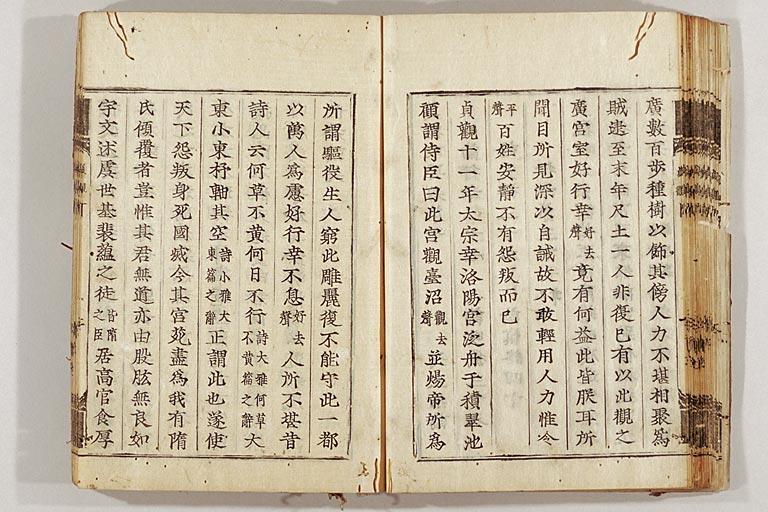 廣數百步種樹以飾其傍人力不堪相聚爲
賊逮至末年尺土一人非復已有以此觀之
廣宮室好行幸好去聲竟有何益此皆朕耳所
聞目所見深以自誡故不敢輕用人力惟令
平聲百姓安靜不有怨叛而已
貞觀十一年太宗幸洛陽宮泛舟于積翠池
顧謂侍臣曰此宮觀臺沼觀去聲並煬帝所爲
所謂驅役生人窮此雕麗復不能守此一都
以萬人爲慮好行幸不息好去聲人所不堪昔
詩人云何草不黃何日不行詩大雅何草不黃篇之辭大
東小東杼軸其空詩小雅大東篇之辭正謂此也遂使
天下怨叛身死國滅今其宮苑盡爲我有隋
氏傾覆者豈惟其君無道亦由股肱無良如
宇文述虞世基裴蘊之徒皆隋之臣居高官食厚